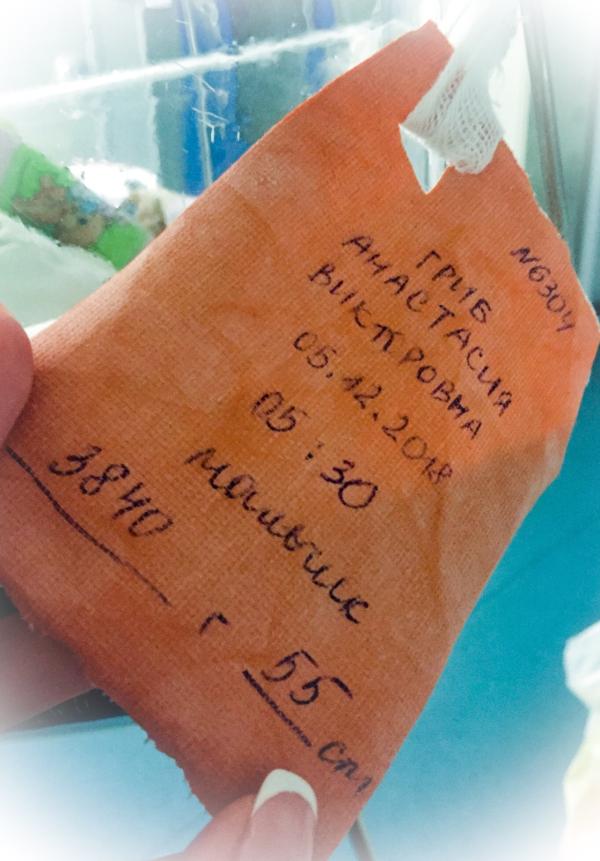 N6304
ГРИБ
АНАСТАСИЯ
ВИКТРОВНА
05.12.2018
05:30
мальчик
3840 г 55 см